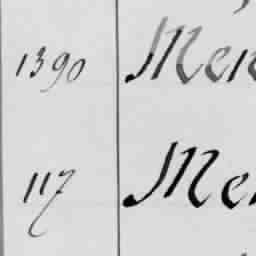 1390 Mer
117 Mer